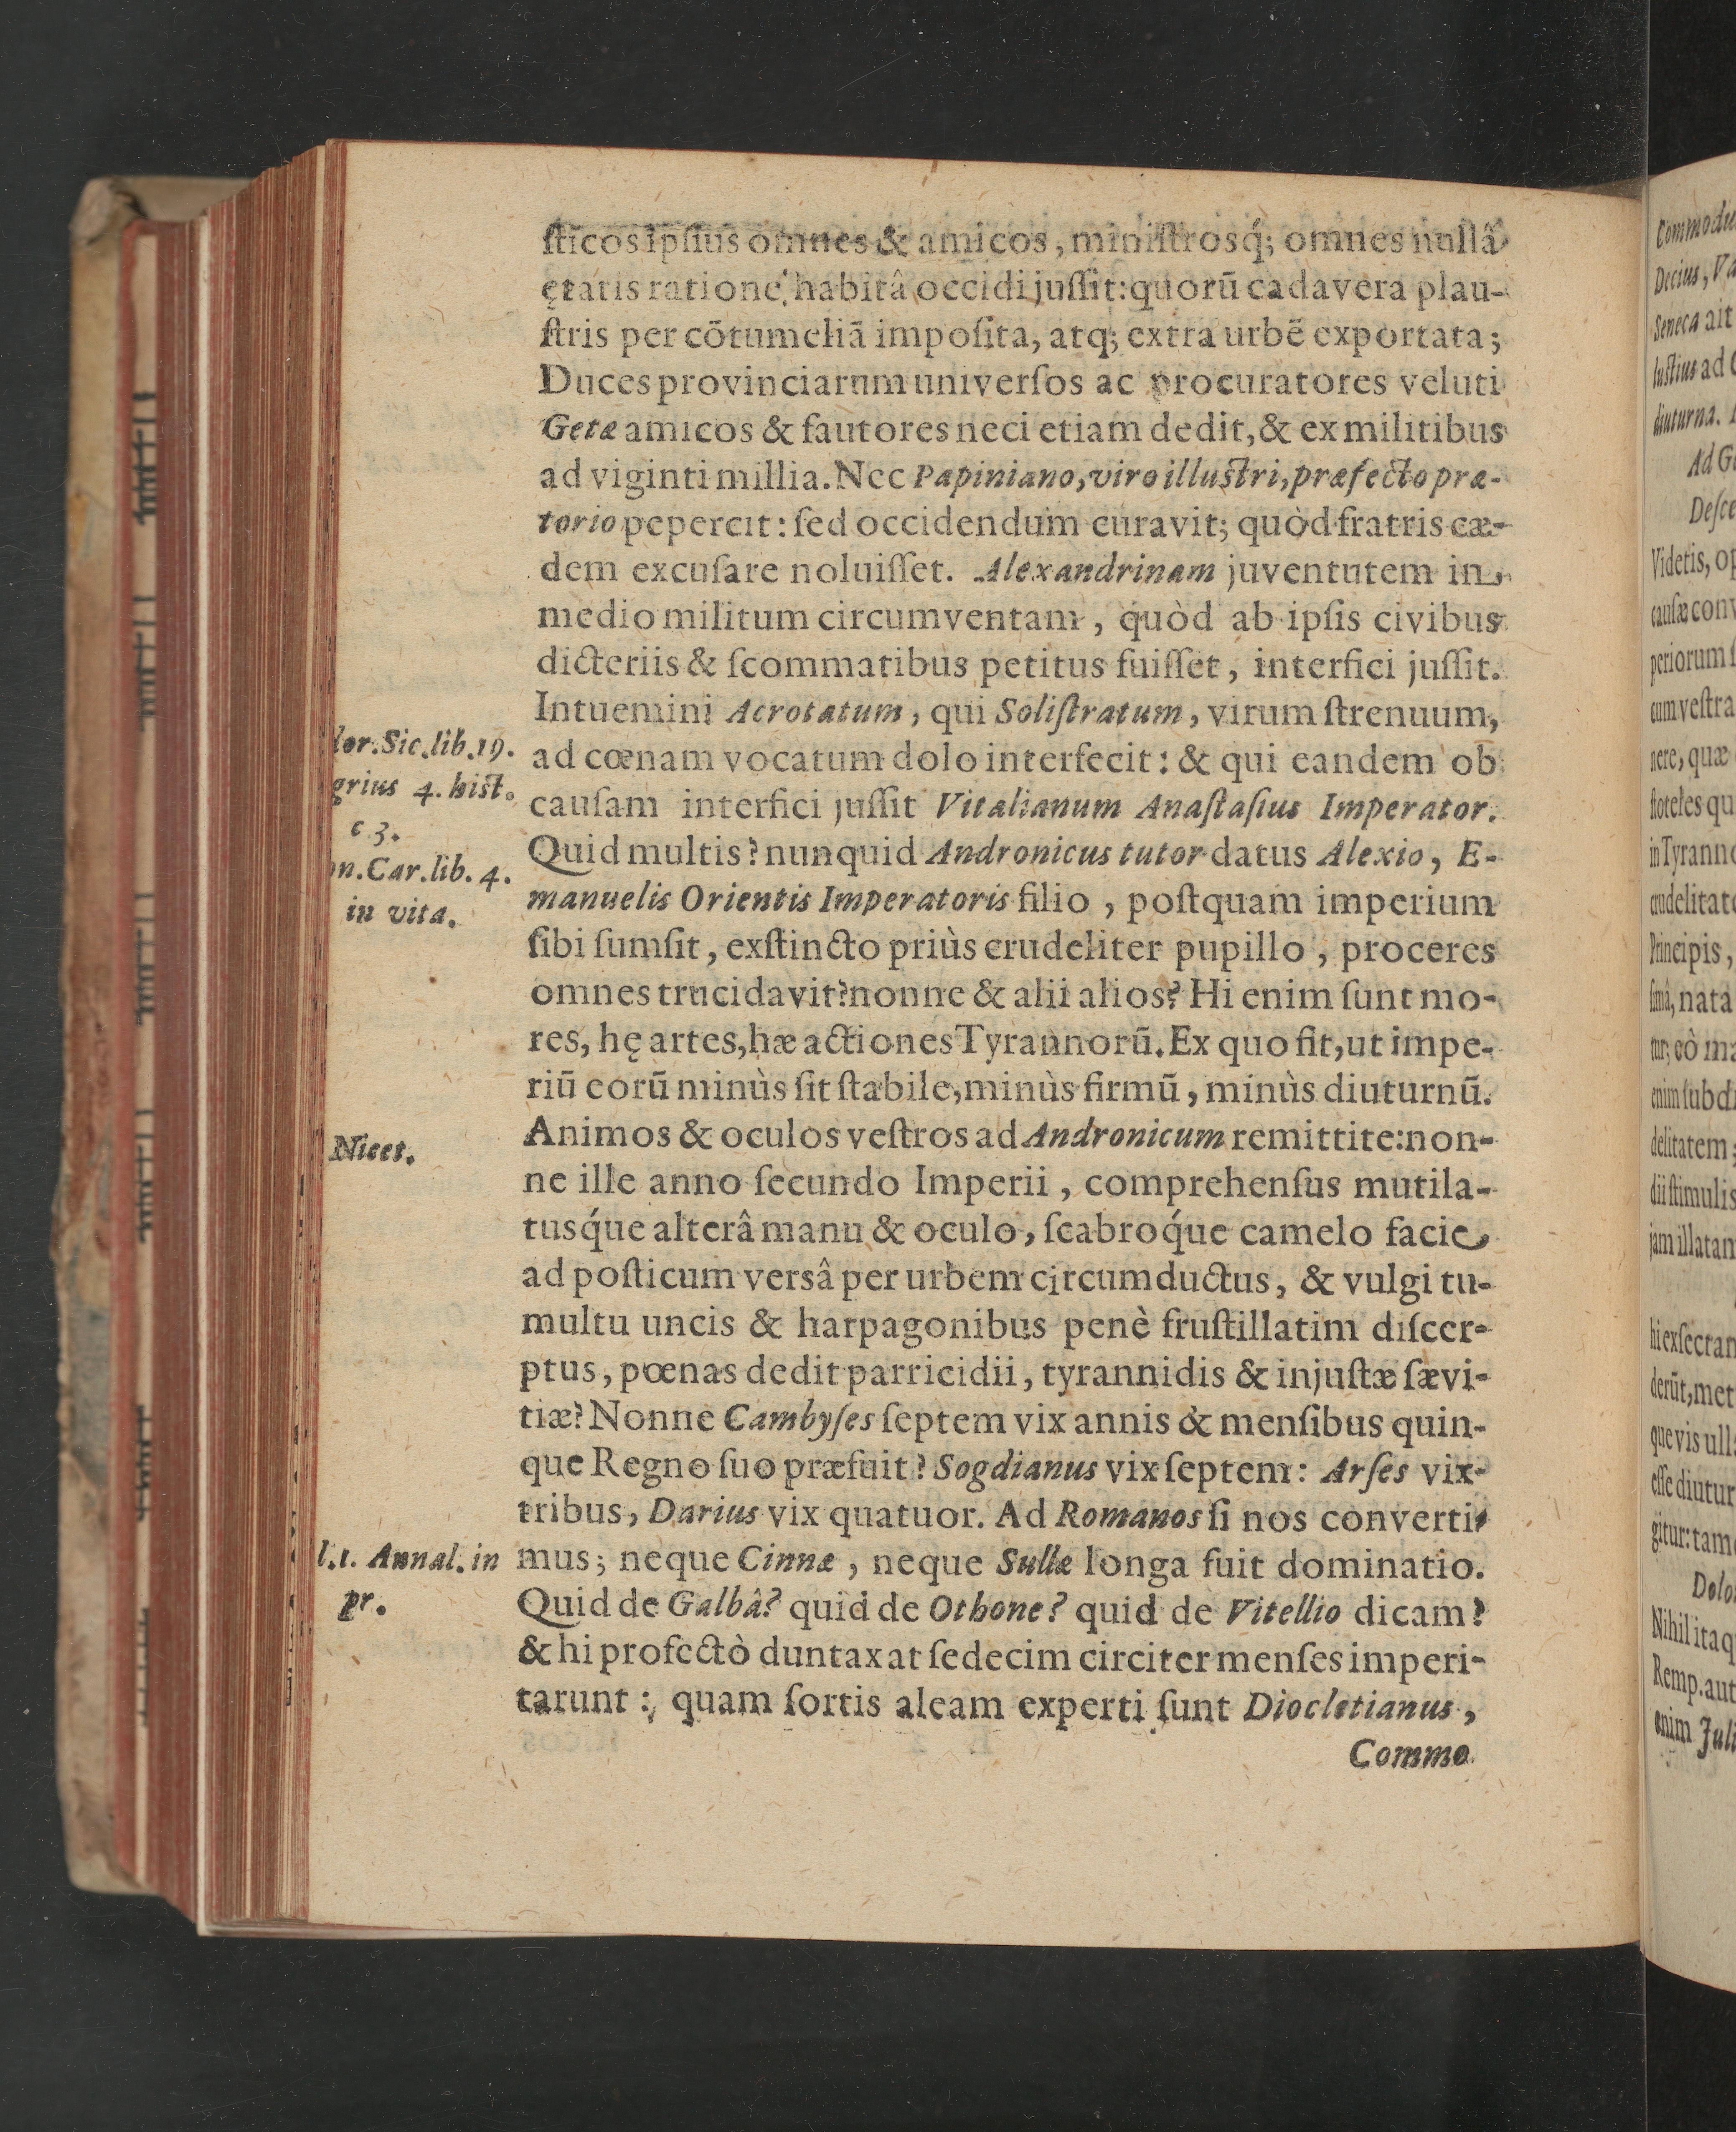 ſticos ipſius omnes & amicos, miniſtrosq́; omnes nullâ
ętatis ratione habitâ occidi juſſit: quorū cadavera plau-
ſtris per cōtumeliā impoſita, atq; extra urbē exportata;
Duces provinciarum univerſos ac procuratores veluti
Getæ amicos & fautores neci etiam dedit, & ex militibus
ad viginti millia. Nec Papiniano, viro illuſtri, præfecto præ-
torio pepercit: ſed occidendum curavit; quòd fratris cæ-
dem excuſare noluiſſet. Alexandrinam juventutem in
medio militum circumventam, quòd ab ipſis civibus
dicteriis & ſcommatibus petitus fuiſſet, interfici juſſit.
Intuemini Acrotatum, qui Soliſtratum, virum ſtrenuum,
ad cœnam vocatum dolo interfecit: & qui eandem ob
cauſam interfici juſſit Vitalianum Anaſtaſius Imperator.
Quid multis? nunquid Andronicus tutor datus Alexio, E-
manuelis Orientis Imperatoris filio, poſtquam imperium
ſibi ſumſit, exſtincto priùs crudeliter pupillo, proceres
omnes trucidavit? nonne & alii alios? Hi enim ſunt mo-
res, hę artes, hæ actiones Tyrannorū. Ex quo fit, ut impe-
riū eorū minùs ſit ſtabile, minùs firmū, minùs diuturnū.
Animos & oculos veſtros ad Andronicum remittite: non-
ne ille anno ſecundo Imperii, comprehenſus mutila-
tusq́ue alterâ manu & oculo, ſcabroq́ue camelo facie
ad poſticum versâ per urbem circumductus, & vulgi tu-
multu uncis & harpagonibus penè fruſtillatim diſcer-
ptus, pœnas dedit parricidii, tyrannidis & injuſtæ ſævi-
tiæ? Nonne Cambyſes ſeptem vix annis & menſibus quin-
que Regno ſuo præfuit? Sogdianus vix ſeptem: Arſes vix
tribus, Darius vix quatuor. Ad Romanos ſi nos converti-
mus; neque Cinnæ, neque Sullæ longa fuit dominatio.
Quid de Galbâ? quid de Othone? quid de Vitellio dicam?
& hi profectò duntaxat ſedecim circiter menſes imperi-
tarunt:, quam ſortis aleam experti ſunt Diocletianus,
Commo
lor. Sic. lib. 19.
grius 4. hiſt.
c 3.
on. Car. lib. 4.
in vita.
Nicet.
l. 1. Annal. in
pr.
Commodu
Decius, Va
Seneca ait
luſtius ad C
diuturna.
Ad G
Deſce
Videtis, op
cauſæ conv
periorum ſ
cum veſtra
nere, quæ
ſtoteles qu
in Tyranno
crudelitate
Principis,
ſimâ, nata
tur; eò ma
enim ſubdi
delitatem;
dii ſtimulis
jam illatam
hi exſecran
derūt, met
que vis ulla
eſſe diutur
gitur: tame
Dolo
Nihil itaq
Remp. aut
enim Juli